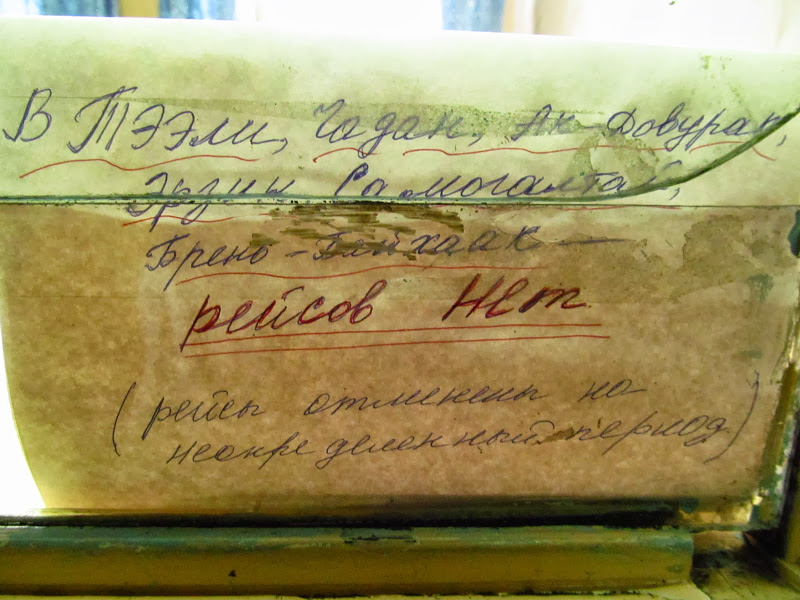 В ТЭЭЛИ, Чадан, Ак-Довурак,
Эрзин Самогалтай,
Брено-Байхаак —
рейсов нет
(рейсы отменены на
неопределенный период)